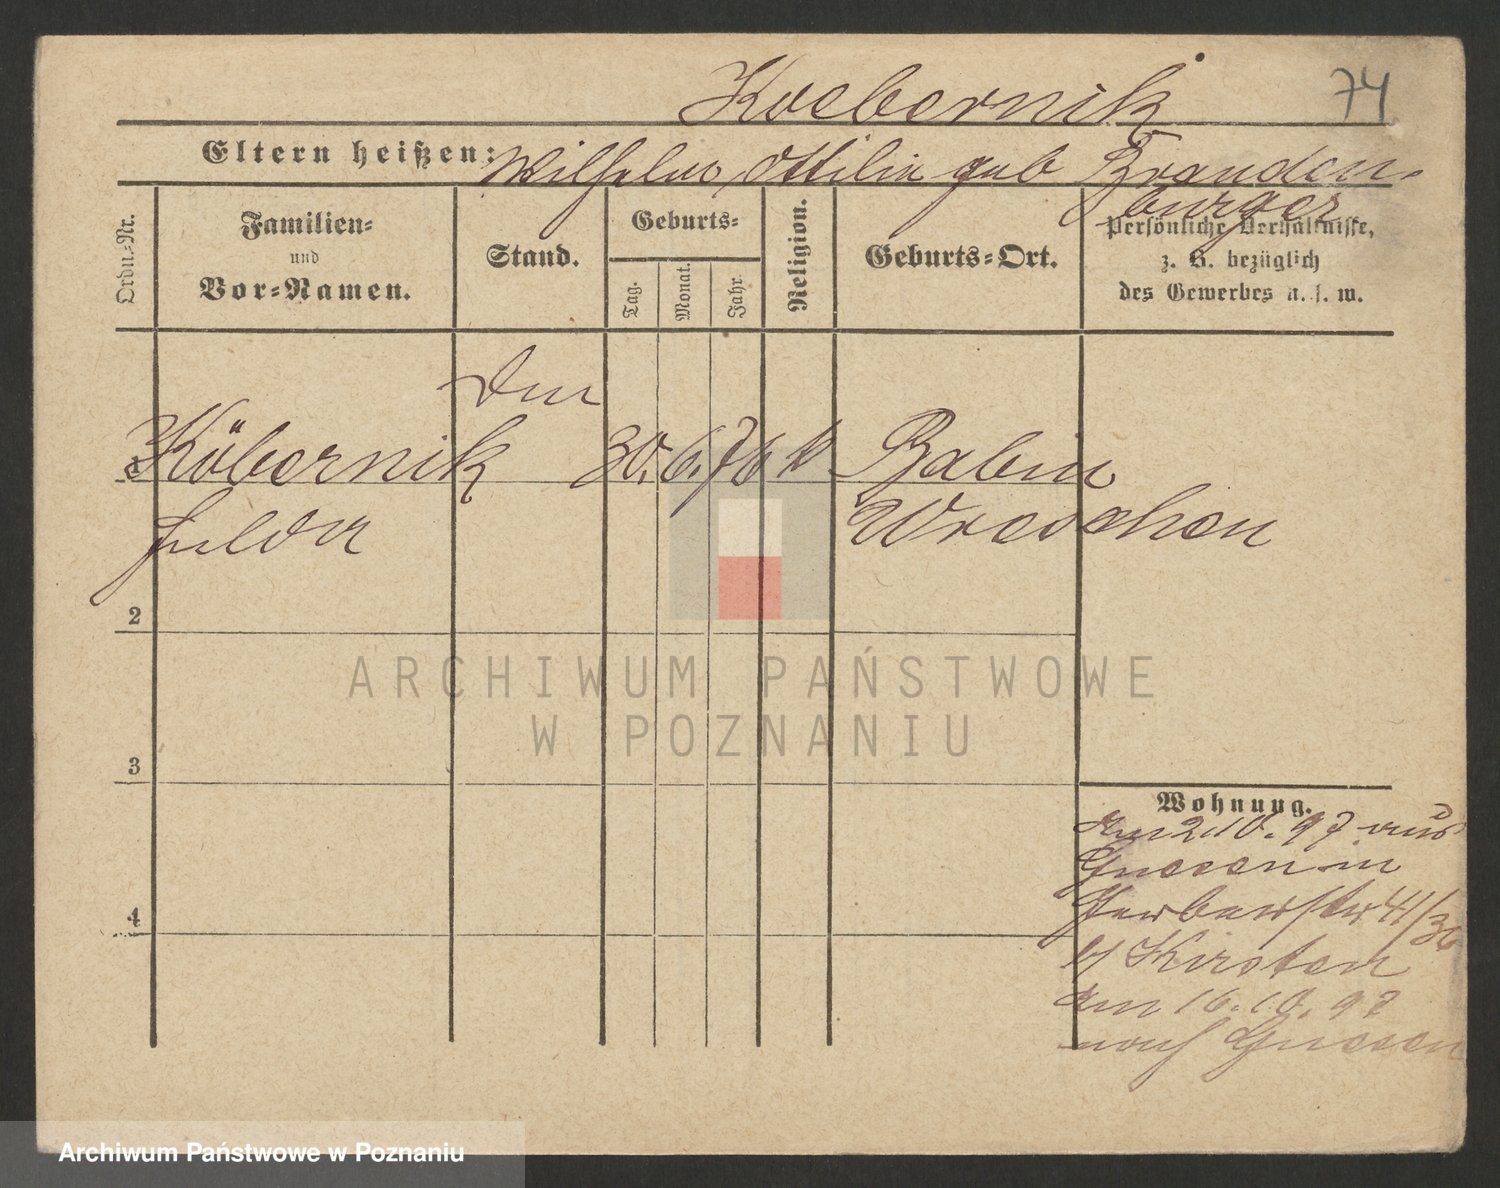 Koebernik 74
Eltern heißen: Wilhelm, Ottilie geb Branden-
burger
Ordn.-Nr.
Familien-
und
Vor-Namen.
Stand.
Geburts-
Tag.
Monat.
Jahr.
Religion.
Geburts-Ort.
Persönliche Verhältnisse,
z. B. bezüglich
des Gewerbes u. s. w.
1 Köbernik 30. 6. 76 k Babin
Hulda Wreschen
2
3
4
Wohnung.
Am 2.10.97 aus
Gnesen in
Gerberstr 41/36
b/ Kirsten
Am 16.10.97
nach Gnesen
ARCHIWUM PAŃSTWOWE
W POZNANIU
Archiwum Państwowe w Poznaniu